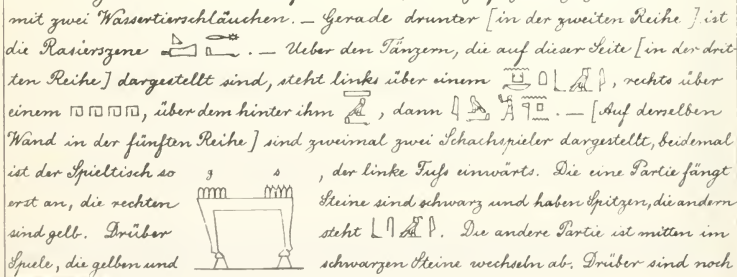 mit zwei Wassertierschläuchen. — Gerade drunter [in der zweiten Reihe] ist
die Rasierszene . — Ueber den Tänzern, die auf dieser Seite [in der drit-
ten Reihe] dargestellt sind, steht links über einem , rechts über
einem , über dem hinter ihm , dann . — [Auf derselben
Wand in der fünften Reihe] sind zweimal zwei Schachspieler dargestellt, beidemal
ist der Spieltisch so , der linke Fuſs einwärts. Die eine Partie fängt
erst an, die rechten Steine sind schwarz und haben Spitzen, die andern
sind gelb. Drüber steht . Die andere Partie ist mitten im
Spiele, die gelben und schwarzen Steine wechseln ab. Drüber sind noch